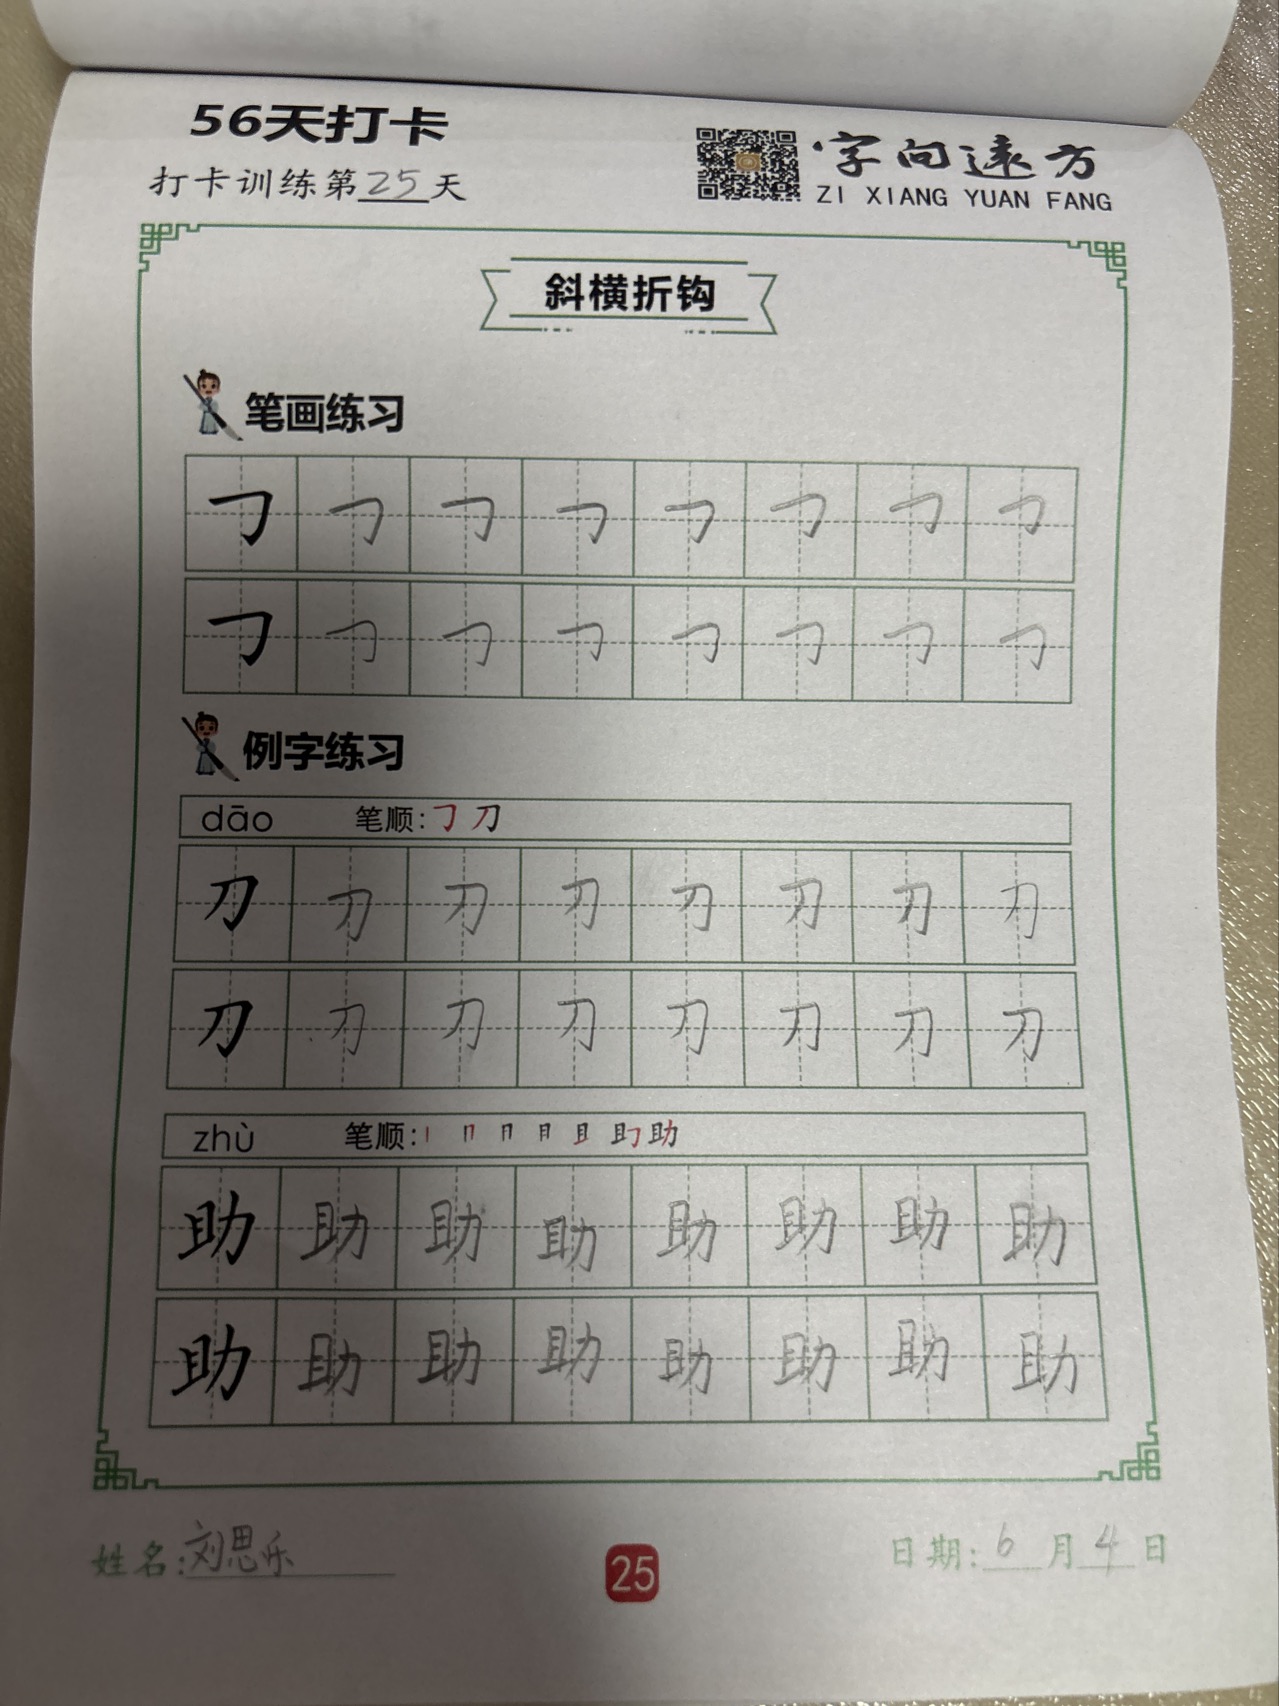 56天打卡
打卡训练第25天
字向远方
ZI XIANG YUAN FANG
斜横折钩
笔画练习
㇆ ㇆ ㇆ ㇆ ㇆ ㇆ ㇆ ㇆
㇆ ㇆ ㇆ ㇆ ㇆ ㇆ ㇆ ㇆
例字练习
dāo 笔顺:㇆ 刀
刀 刀 刀 刀 刀 刀 刀 刀
刀 刀 刀 刀 刀 刀 刀 刀
zhù 笔顺:丨 冂 月 且 助
助 助 助 助 助 助 助 助
助 助 助 助 助 助 助 助
姓名:刘思乐
25
日期:6月4日